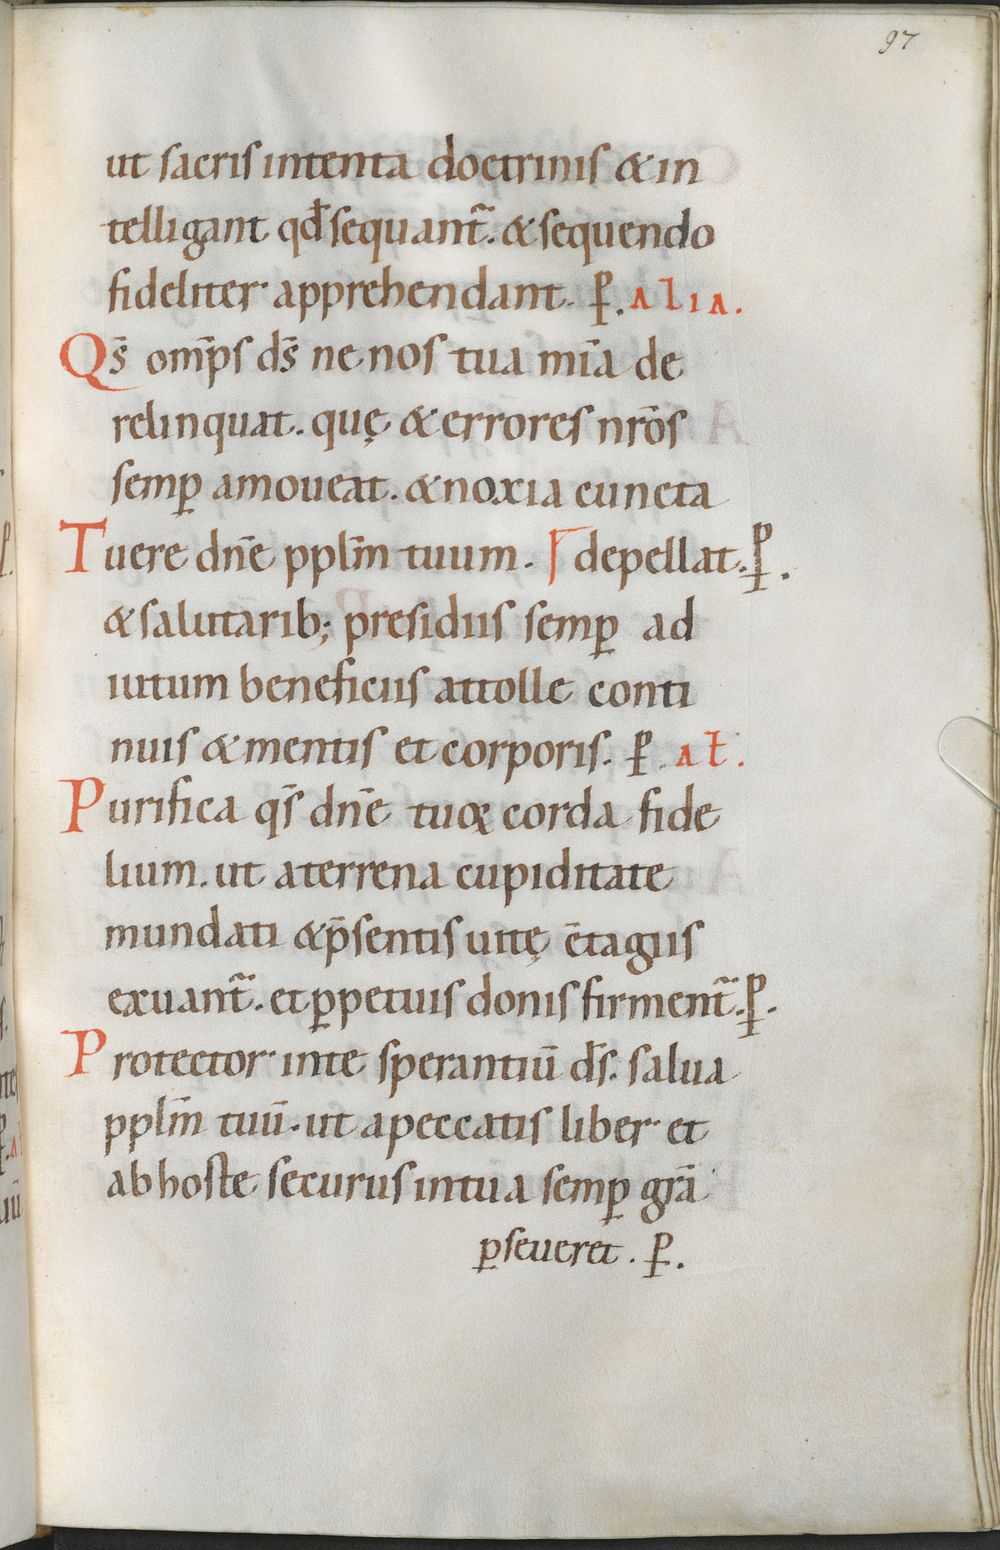 97
ut sacris intenta doctrinis & in
telligant qđ sequant᷑. & sequendo
fideliter apprehendant. ꝑ. alia.
Qs̄ omp̄s ds̄ ne nos tua mīa de
relinquat. quę & errores nr̄os
semꝑ amoueat. & noxia cuncta
Tuere dn̄e ppl̄m tuum. ⌈depellat. ꝑ.
& salutarib; presidiis semꝑ ad
iutum beneficiis attolle conti
nuis & mentis et corporis. ꝑ. ał.
Purifica qs̄ dn̄e tuoꝝ corda fide
lium. ut a terrena cupiditate
mundati & p̄sentis uitę c̄tagiis
exuant᷑. et ꝑpetuis donis firment᷑. ꝑ.
Protector in te sperantiū ds̄. salua
ppl̄m tuū. ut a peccatis liber et
ab hoste securus in tua semꝑ grā
ꝑseueret. ꝑ.